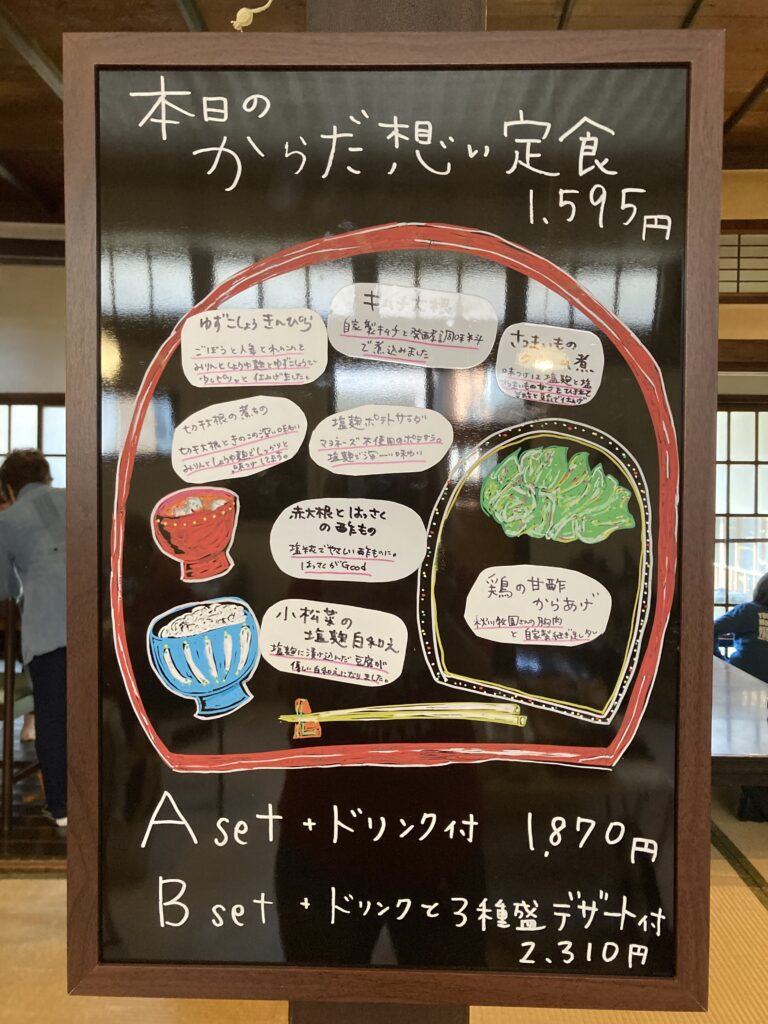 本日の
からだ想い定食
1.595円
ゆずこしょうきんぴら
ごぼうと人参とれんこんを
みりんとしょうゆ麹とゆずこしょうで
仕上げました。
キムチ大根
自家製キムチと発酵調味料
で煮込みました
さつまいもの
煮
味つけは塩麹と塩
切干大根の煮もの
切干大根ときのこの深い味わい
みりんとしょうゆ麹でしっかりと
味つけしてます。
塩麹ポテトサラダ
マヨネーズ不使用のポテサラ。
塩麹で深ーい味わい
赤大根とはっさく
の酢もの
塩糀でやさしい酢ものに。
はっさくがGood
鶏の甘酢
からあげ
秋川牧園さんの胸肉
と自家製
小松菜の
塩麹白和え
塩麹に漬け込んだ豆腐が
優しい白和えになりました。
A set + ドリンク付 1.870円
B set + ドリンクと3種盛デザート付
2.310円